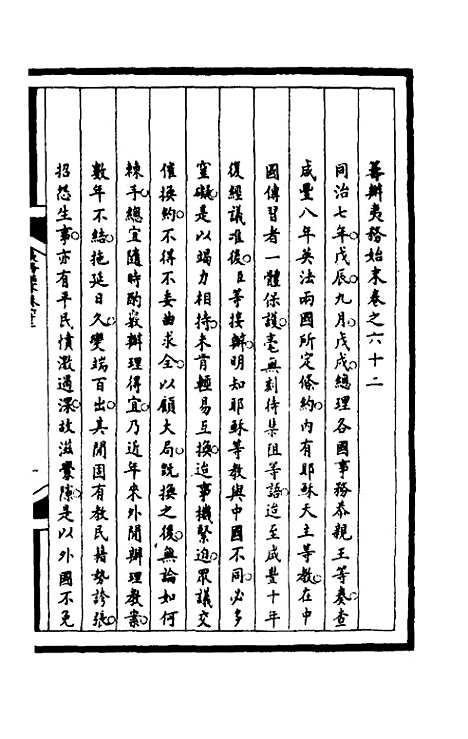 籌辦夷務始末卷之六十二
同治七年戊辰九月戊戌總理各國事務恭親王等奏查
咸豐八年英法兩國所定條約內有耶穌天主等教在中
國傳習者一體保護毫無刻待禁阻等語迨至咸豐十年
復經議准後臣等接辦明知耶穌等教與中國不同必多
窒礙是以竭力相持未肯輕易互換迨事機緊迫眾議交
催換約不得不委曲求全以顧大局既換之後無論如何
棘手總宜隨時酌覈辦理得宜乃近年來外閒辦理教案
數年不結拖延日久變端百出其閒固有教民藉勢誇張
招怨生事亦有平民憤激過深故滋釁隙是以外國不免